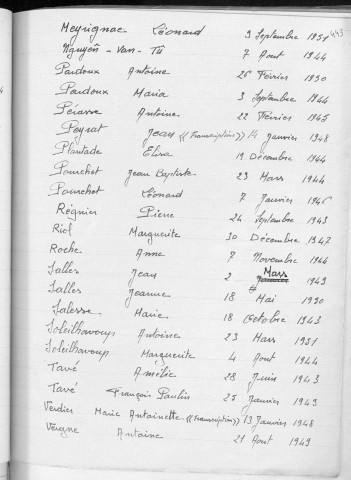 443
Meyrignac Léonard 9 Septembre 1951
Nguyên-Van-Tu 7 Aout 1944
Pardoux Antoine 26 Février 1950
Pardoux Maria 3 Septembre 1944
Pérasse Antoine 22 Février 1945
Peyrat Jean ((Transcription)) 14 Janvier 1948
Plantade Elisa 19 Décembre 1944
Pourchet Jean Baptiste 23 Mars 1944
Pourchet Léonard 7 Janvier 1946
Régnier Pierre 24 Septembre 1943
Riol Marguerite 30 Décembre 1947
Roche Anne 7 Novembre 1944
Salles Jean 2 Mars 1949
Salles Jeanne 18 Mai 1950
Salesse Marie 18 Octobre 1943
Soleilhavoup Antoine 23 Mars 1951
Soleilhavoup Marguerite 4 Aout 1944
Tavé Amélie 28 Juin 1943
Tavé François Paulin 25 Janvier 1949
Verdier Marie Antoinette ((Transcription)) 13 Janvier 1948
Vergne Antoine 21 Aout 1949